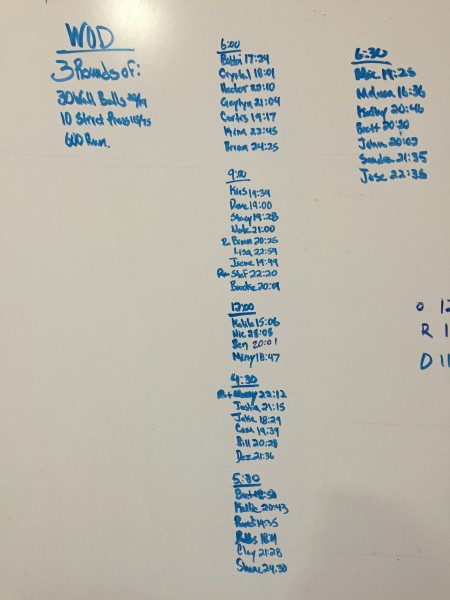 WOD
3 Rounds of:
30 Wall Balls 20/14
10 Street Press 115/75
600 Run.
6:00
Bobbi 17:24
Crystal 18:01
Hector 22:10
Geoglyn 21:04
Curtis 19:17
Kim 22:45
Brian 24:25
9:00
Kris 19:34
Dave 19:00
Stacy 19:28
Nate 21:00
Brian 20:25
Lisa 22:54
19:49
Rx Stef 22:20
Brooke 20:09
12:00
Kalila 15:06
Nic 25:08
Ben 20:01
Missy 18:47
4:30
22:12
Justin 21:15
Jake 18:29
Cam 19:39
Bill 20:28
Dez 21:36
5:30
Hollie 20:43
19:35
Clay 21:28
Shane 24:30
6:30
19:25
Melissa 18:36
Kathy 20:46
Brett 20:30
John 20:09
Sandra 21:35
Jose 22:38
O 12
R 1
D 11